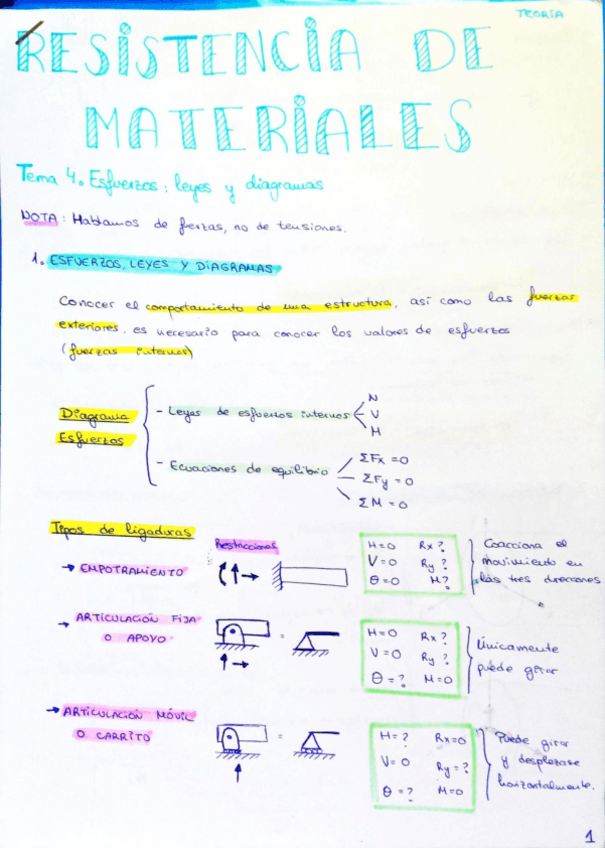 TEORÍA
RESISTENCIA DE
MATERIALES
Tema 4. Esfuerzos: leyes y diagramas
NOTA: Hablamos de fuerzas, no de tensiones.
1. ESFUERZOS, LEYES Y DIAGRAMAS
Conocer el comportamiento de una estructura, así como las fuerzas
exteriores, es necesario para conocer los valores de esfuerzos
(fuerzas internas)
Diagrama
Esfuerzos
- Leyes de esfuerzos internos
N
V
M
- Ecuaciones de equilibrio
ΣFx = 0
ΣFy = 0
ΣM = 0
Tipos de ligaduras
Restricciones
→ EMPOTRAMIENTO
H=0 Rx?
V=0 Ry?
θ=0 M?
Coacciona el
movimiento en
las tres direcciones
→ ARTICULACIÓN FIJA
O APOYO
=
H=0 Rx?
V=0 Ry?
θ=? M=0
Únicamente
puede girar
→ ARTICULACIÓN MÓVIL
O CARRITO
=
H=? Rx=0
V=0 Ry=?
θ=? M=0
Puede girar
y desplazarse
horizontalmente.
1